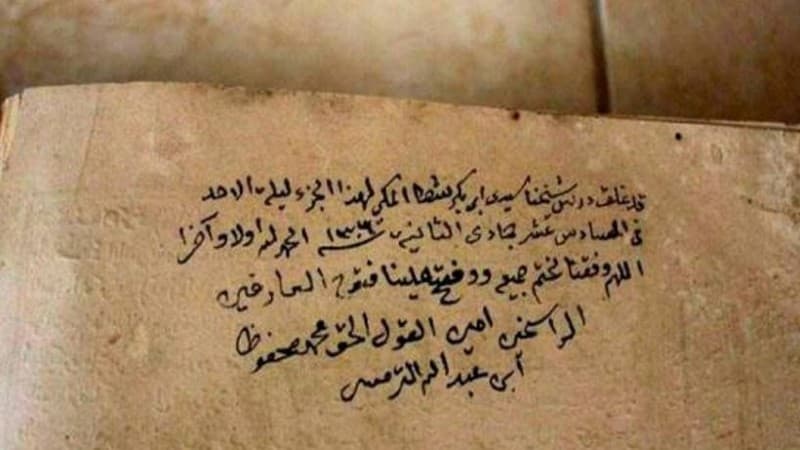 قد غلق درس شيخنا سيدي ابي بكر شطا المكي لهذا الجزء ليلة الاحد
في السادس عشر جمادى الثانية سنة الحمد لله اولا وآخرا
اللهم وفقنا لختم جميع وافتح علينا فتوح العارفين
الراسخين امين القول الحق محمد محفوظ
ابن عبد الله الترمسي